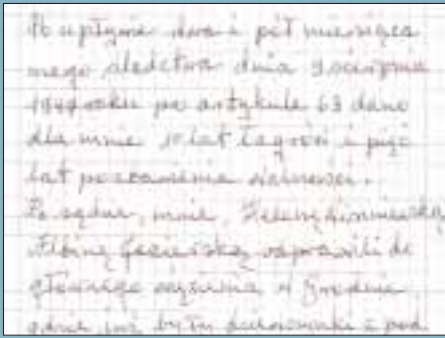 Po upływie dwa i pół miesięca
mego śledztwa dnia 9 sierpnia
1944 roku po artykule 63 dano
dla mnie 10 lat łagrów i pięć
lat pozbawienia wolności.
Po sądzie, mnie, Helenę
Albinę odprawili do
głównego więzienia w Grodnie
gdzie już były i pod